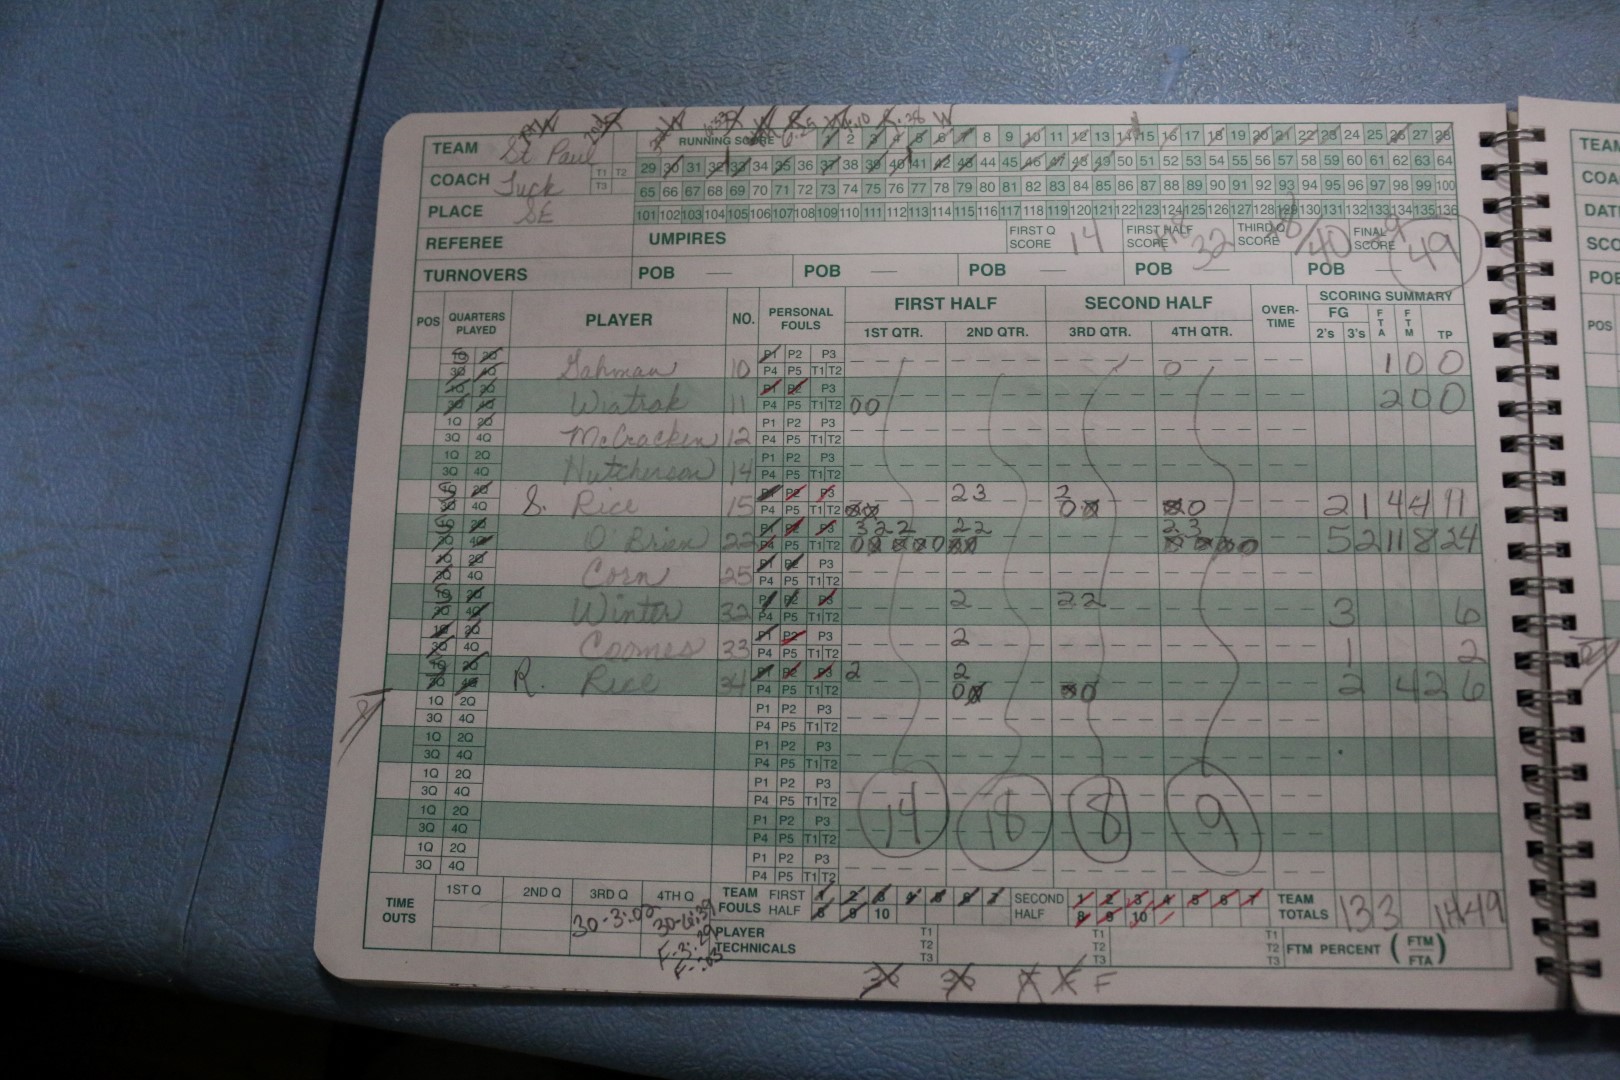 TEAM St Paul RUNNING SCORE 1 2 3 4 5 6 7 8 9 10 11 12 13 14 15 16 17 18 19 20 21 22 23 24 25 26 27 28
COACH Tuck T1 T2 T3 29 30 31 32 33 34 35 36 37 38 39 40 41 42 43 44 45 46 47 48 49 50 51 52 53 54 55 56 57 58 59 60 61 62 63 64
65 66 67 68 69 70 71 72 73 74 75 76 77 78 79 80 81 82 83 84 85 86 87 88 89 90 91 92 93 94 95 96 97 98 99 100
PLACE SE 101 102 103 104 105 106 107 108 109 110 111 112 113 114 115 116 117 118 119 120 121 122 123 124 125 126 127 128 129 130 131 132 133 134 135 136
REFEREE UMPIRES FIRST Q SCORE 14 FIRST HALF SCORE 32 THIRD Q SCORE 40 FINAL SCORE 49
TURNOVERS POB POB POB POB POB
POS QUARTERS PLAYED PLAYER NO. PERSONAL FOULS FIRST HALF SECOND HALF OVER-TIME SCORING SUMMARY
1ST QTR. 2ND QTR. 3RD QTR. 4TH QTR. FG 2's 3's FTA FTM TP
1Q 2Q P1 P2 P3
3Q 4Q Gahman 10 P4 P5 T1 T2 0 1 0 0
1Q 2Q P1 P2 P3
3Q 4Q Wiatrak 11 P4 P5 T1 T2 0 0 2 0 0
1Q 2Q P1 P2 P3
3Q 4Q McCracken 12 P4 P5 T1 T2
1Q 2Q P1 P2 P3
3Q 4Q Hutcherson 14 P4 P5 T1 T2
1Q 2Q P1 P2 P3 2 3 2
3Q 4Q S. Rice 15 P4 P5 T1 T2 0 0 0 0 0 0 2 1 4 4 11
1Q 2Q P1 P2 P3 3 2 2 2 2 2 3
3Q 4Q O'Brien 22 P4 P5 T1 T2 5 2 11 8 24
1Q 2Q P1 P2 P3
3Q 4Q Corn 25 P4 P5 T1 T2
1Q 2Q P1 P2 P3 2 2 2
3Q 4Q Winter 32 P4 P5 T1 T2 3 6
1Q 2Q P1 P2 P3 2
3Q 4Q Coomes 33 P4 P5 T1 T2 1 2
1Q 2Q P1 P2 P3 2 2
3Q 4Q R. Rice 34 P4 P5 T1 T2 0 0 0 0 2 4 2 6
1Q 2Q P1 P2 P3
3Q 4Q P4 P5 T1 T2
1Q 2Q P1 P2 P3
3Q 4Q P4 P5 T1 T2
1Q 2Q P1 P2 P3
3Q 4Q P4 P5 T1 T2 14 18 8 9
1Q 2Q P1 P2 P3
3Q 4Q P4 P5 T1 T2
1Q 2Q P1 P2 P3
3Q 4Q P4 P5 T1 T2
TIME OUTS 1ST Q 2ND Q 3RD Q 4TH Q TEAM FOULS FIRST HALF 1 2 3 4 5 6 7 SECOND HALF 1 2 3 4 5 6 7 TEAM TOTALS 13 3 14 49
30-3:00 8 9 10 8 9 10
PLAYER TECHNICALS T1 T2 T3 T1 T2 T3 T1 T2 T3 FTM PERCENT ( FTM FTA )
F
TEAM
COA
DAT
SCO
POB
POS